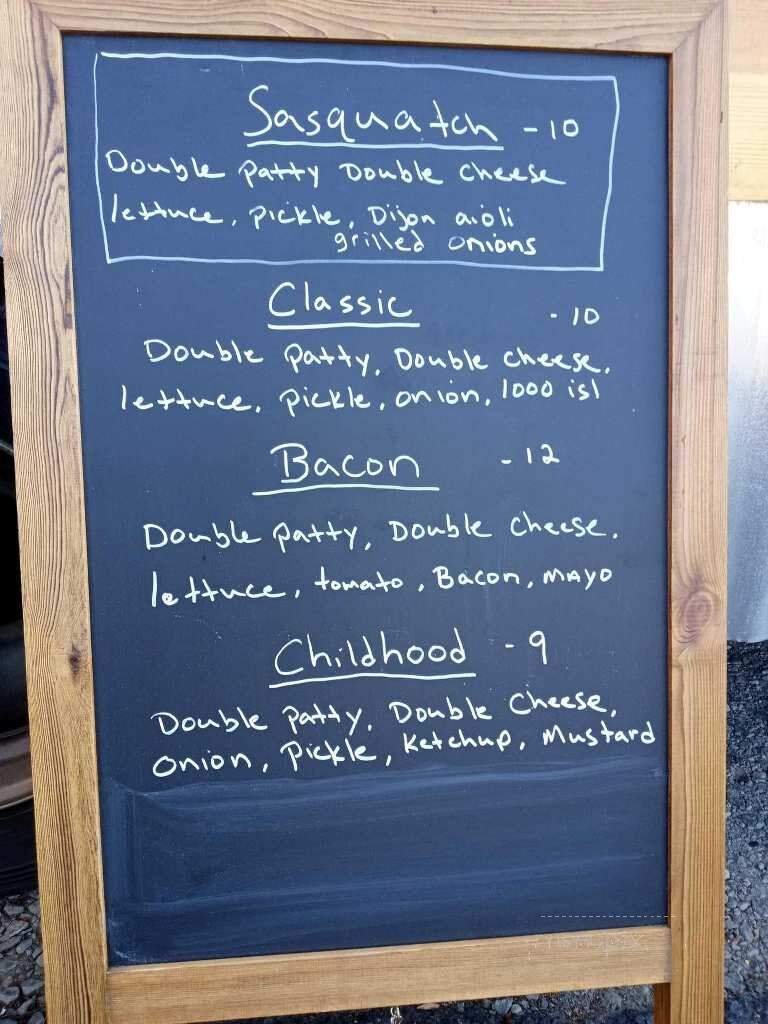 Sasquatch - 10
Double patty Double cheese
lettuce, pickle, Dijon aioli
grilled onions
Classic - 10
Double patty, Double cheese,
lettuce, pickle, onion, 1000 isl
Bacon - 12
Double patty, Double cheese,
lettuce, tomato, Bacon, MAYO
Childhood - 9
Double patty, Double Cheese,
onion, pickle, ketchup, Mustard